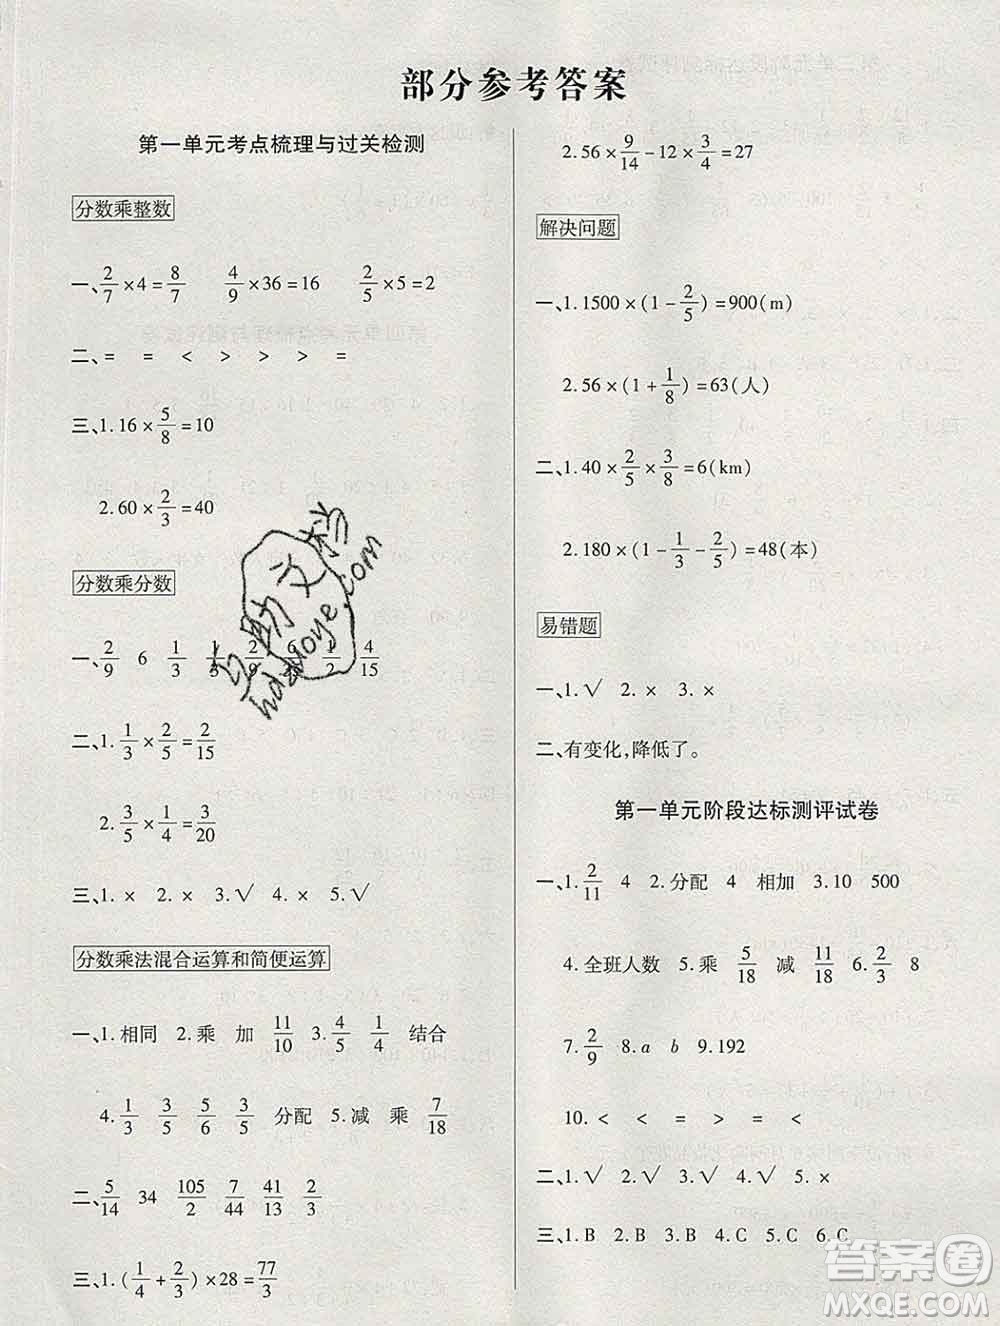 部分参考答案
第一单元考点梳理与过关检测
分数乘整数
一、2/7×4=8/7 4/9×36=16 2/5×5=2
二、= = < > > =
三、1.16×5/8=10
2.60×2/3=40
分数乘分数
一、2/9 6 1/3 1/3 2/9 1/2 4/15
二、1.1/3×2/5=2/15
2.3/5×1/4=3/20
三、1.× 2.× 3.√ 4.√
分数乘法混合运算和简便运算
一、1.相同 2.乘 加 11/10 3.4/5 1/4 结合
4.1/3 3/5 5/6 3/5 分配 5.减 乘 7/18
二、5/14 34 105/2 7/44 41/13 2/3
三、1.(1/4+2/3)×28=77/3
2.56×9/14-12×3/4=27
解决问题
一、1.1500×(1-2/5)=900(m)
2.56×(1+1/8)=63(人)
二、1.40×2/5×3/8=6(km)
2.180×(1-1/3-2/5)=48(本)
易错题
一、1.√ 2.× 3.×
二、有变化,降低了。
第一单元阶段达标测评试卷
一、1.2/11 4 2.分配 4 相加 3.10 500
4.全班人数 5.乘 5/18 减 11/18 6.2/3 8
7.2/9 8.a b 9.192
10.< < = > = <
二、1.√ 2.√ 3.√ 4.√ 5.×
三、1.B 2.B 3.B 4.C 5.C 6.C
互助文档
hdzuoye.com
答案圈
MXQE.COM